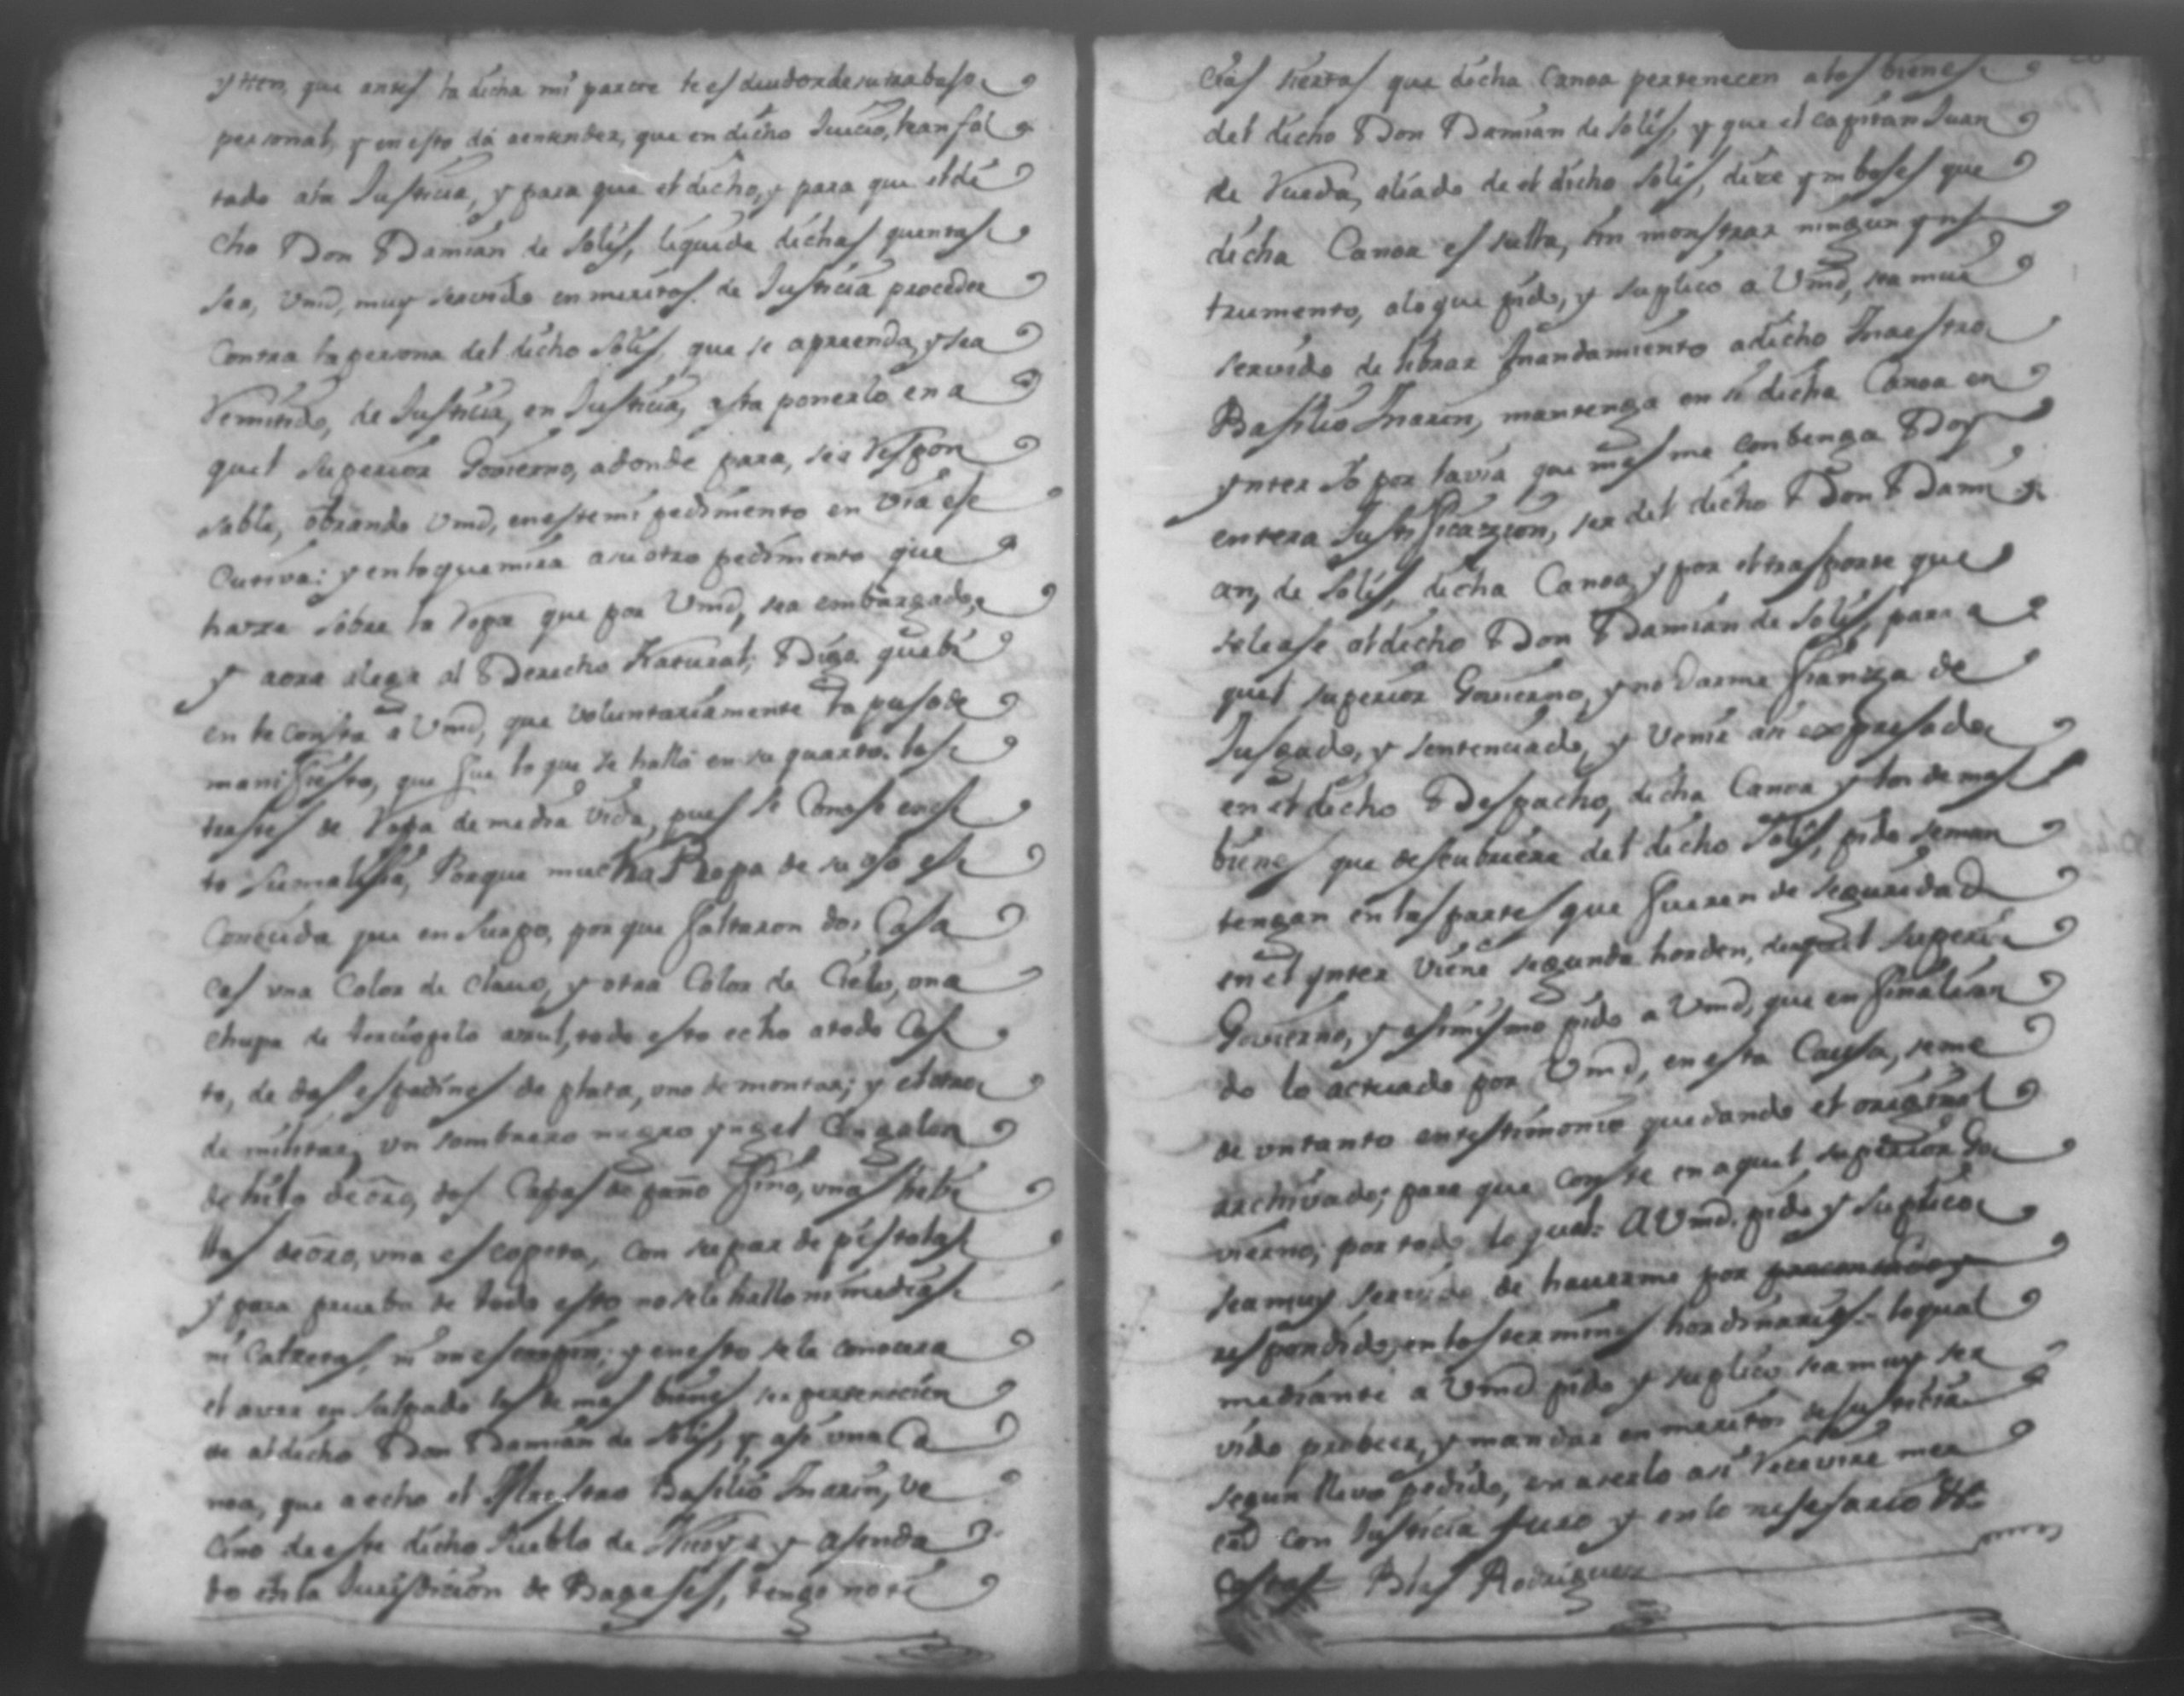 y tten, que antes la dicha mi parte le es deudor de su trabaso
personal, y en esto da aentender, que en dicho Juicio, lean fal
tado ala Justicia, y para que el dicho, y para que el di
cho Don Damian de Solis, liquide dichas quentas
sea, Vmd, muy servido en meritos de Justicia proceder
Contra la persona del dicho Solis, que se aprrenda, y sea
Remitido, de Justicia, en Justicia, asta ponerlo en a
quel Superior Govierno, adonde para, ser Respon
sable, obrando Vmd, en este mi pedimento en via ese
Cutiva: y en lo que mira a su otro pedimento que
hazze sobre la Ropa que por Vmd, sea embargado,
y aora alega al Derecho Natural; Digo que bi
en le consta a Vmd, que voluntariamente la puso de
manifiesto, que fue lo que se halló en su quarto. los
trastes de Ropa de media vida, pues se Conose en es
to su malisia, Porque mucha Ropa de su uso es
Conocida que en Surgo, porque faltaron dos Casa
cas una Color de Clavo, y otra Color de Cielo, una
chupa de terciopelo azul, todo esto echo a todo Cos
to, de dos espadines de plata, uno de montar; y el otro
de militar, un sombrero negro yngel Con galon
de hilo de oro, dos Capas de paño fino, unas hebi
llas de oro, una escopeta, con su par de pistolas
y para prueba de todo esto no se le hallo ni medias
ni Calzetas, ni un escarpin; y en esto se le conosera
el aver en Salpado los de mas bienes ser pertenicien
te al dicho Don Damian de Solis, y asi una Ca
noa, que a echo el Maestro Basilio Marin, ve
cino de este dicho Pueblo de Nicoya y asenda
do en la Jurisdicion de Bagases, tengo noti
cias siertas que dicha Canoa pertenecen a los bienes
del dicho Don Damian de Solis, y que el capitan Juan
de Rueda, aliado de el dicho Solis, dize y m boses que
dicha Canoa es sulla, sin monstrar ningun yns
trumento, a lo que pido, y suplico a Vmd, sea mui
servido de librar Mandamiento a dicho Maestro
Basilio Marin, mantenga en si dicha Canoa en
ynter Yo por la via que mas me conbenga Doy
entera Justificazion, ser del dicho Don Dami
an, de Solis, dicha Canoa, y por el trasporte que
se le ase al dicho Don Damian de Solis, para a
quel superior Govierno, y no darme fianza de
Jusgado, y sentenciado, y Venir asi expresado
en el dicho Despacho, dicha Canoa y los de mas
bienes que descubriere del dicho Solis, pido seman
tengan en las partes que fueren de seguridad
en el ynter viene segunda horden, de aquel superior
Govierno, y asimismo pido a Vmd, que en finalisan
do lo actuado por Vmd, en esta Causa, se me
de un tanto en testimonio quedando el original
archivado; para que conste en aquel superior Go
vierno; por todo lo qual: A Vmd. pido y suplico
sea muy servido de haverme por
respondido, en los terminos hordinarios- lo qual
mediante a Vmd pido y suplico sea muy ser
vido probeer, y mandar en meritos de Justicia
segun llevo pedido, en aserlo asi Recevire mer
ced con Justicia Juro y en lo nesesario &a
Costas= Blas Rodriguez